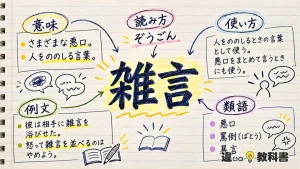 意味
・さまざまな悪口。
・人をののしる言葉。
読み方
ぞうごん
使い方
人をののしるときの言葉
として使う。
悪口をまとめて言うとき
にも使う。
雑言
例文
・彼は相手に雑言を
浴びせた。
・怒って雑言を並べるのは
やめよう。
類語
・悪口
・罵倒(ばとう)
・暴言
教科書